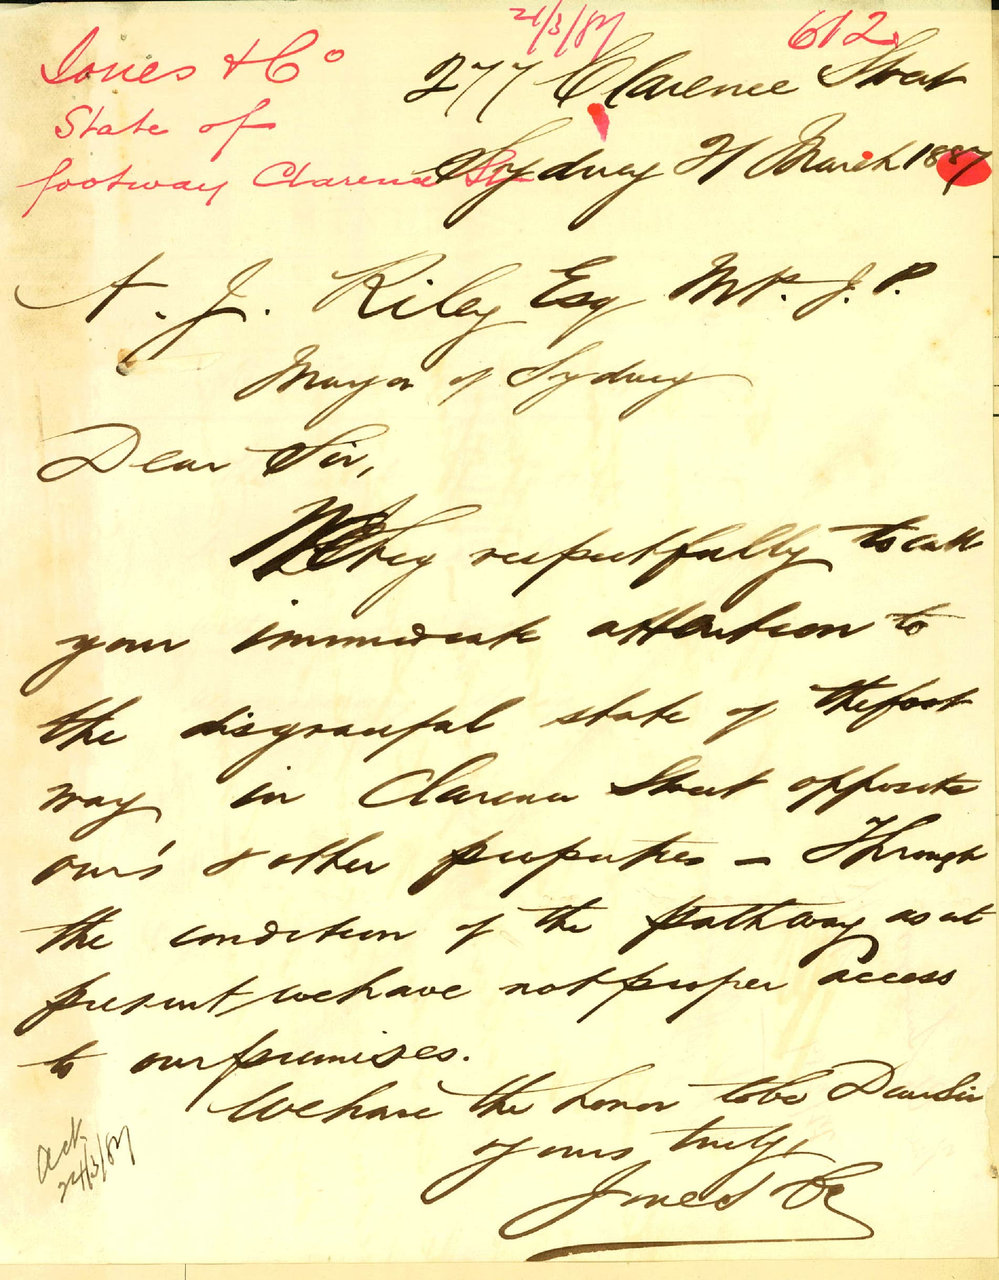 21/3/87
612
Jones & Co
State of
footway Clarence St
277 Clarence Street
Sydney 21 March 1887
A. J. Riley Esq MP. J. P.
Mayor of Sydney
Dear Sir,
We beg respectfully to call
your immediate attention to
the disgraceful state of the foot
way in Clarence Street opposite
our's & other properties – Through
the condition of the pathway as at
present we have not proper access
to our premises.
We have the honor to be Dear Sir
yours truly,
Jones & Co
Ack
24/3/87